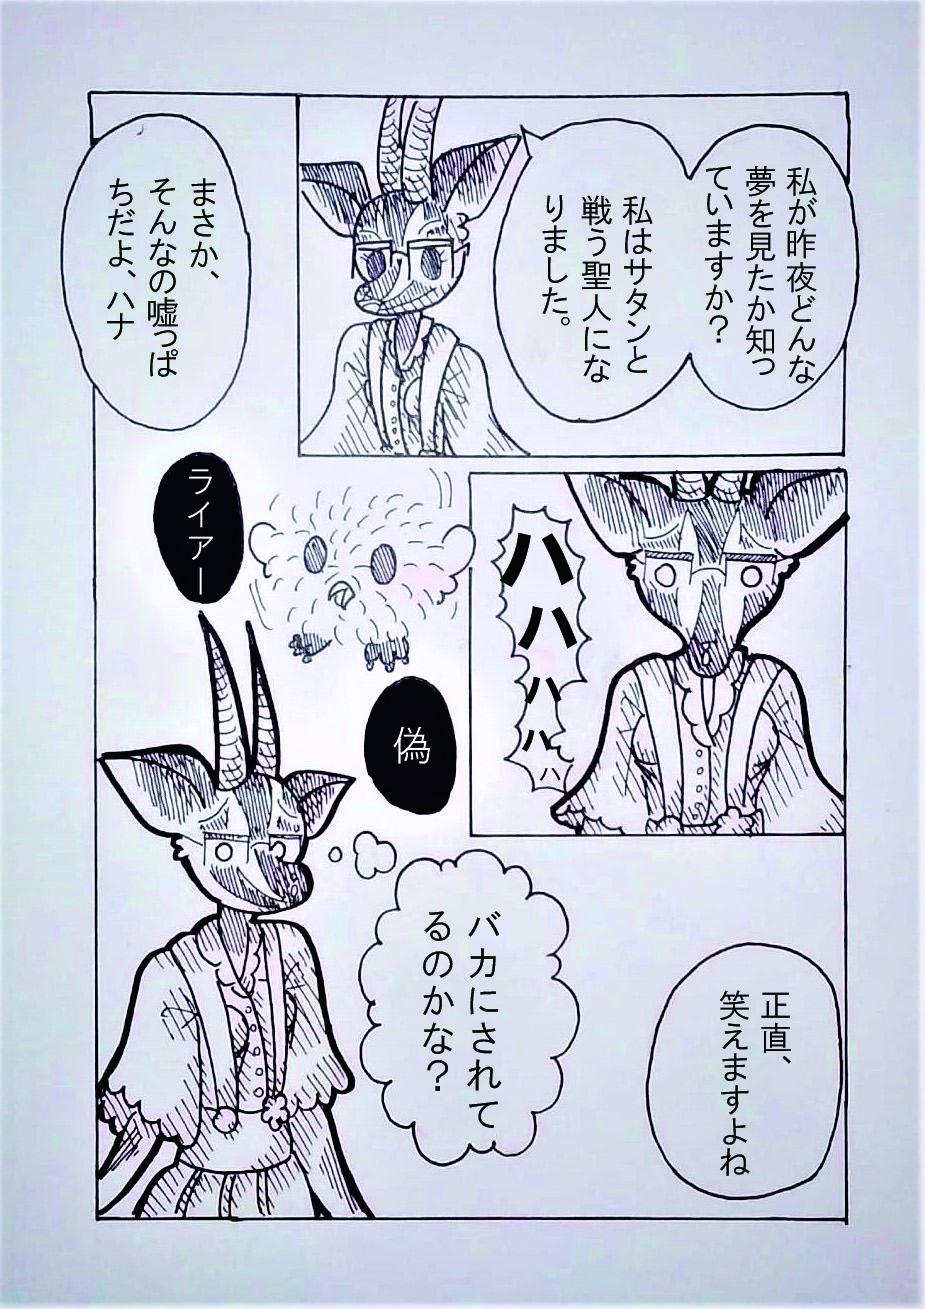 私が昨夜どんな
夢を見たか知っ
ていますか？
私はサタンと
戦う聖人にな
りました。
まさか、
そんなの嘘っぱ
ちだよ、ハナ
ハハハハハ
ライアー
偽
バカにされて
るのかな？
正直、
笑えますよね